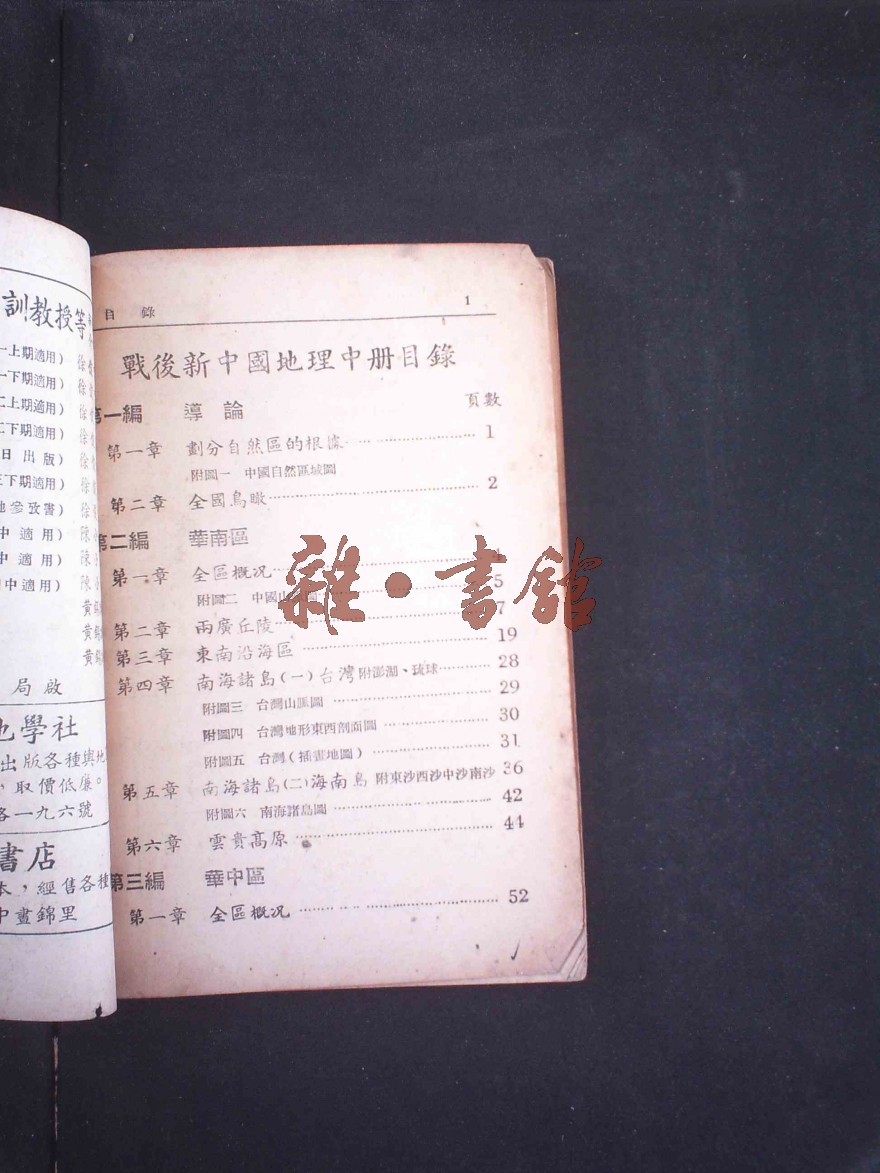 訓教授等
一上期適用)
一下期適用)
二上期適用)
二下期適用)
日出版)
三下期適用)
地參攷書)
中適用)
中適用)
中適用)
局啟
學社
出版各種輿地
,取價低廉。
一九六號
書店
本,經售各種
中畫錦里
目錄 1
戰後新中國地理中册目錄
頁數
第一編 導論
第一章 劃分自然區的根據 1
附圖一 中國自然區域圖
第二章 全國鳥瞰 2
第二編 華南區
第一章 全區概况 4
附圖二 中國山 圖 5
第二章 兩廣丘陵 7
第三章 東南沿海區 19
第四章 南海諸島(一)台灣附澎湖、琉球 28
附圖三 台灣山脈圖 29
附圖四 台灣地形東西剖面圖 30
附圖五 台灣(插畫地圖) 31
第五章 南海諸島(二)海南島 附東沙西沙中沙南沙 36
附圖六 南海諸島圖 42
第六章 雲貴高原 44
第三編 華中區
第一章 全區概况 52
雜·書館